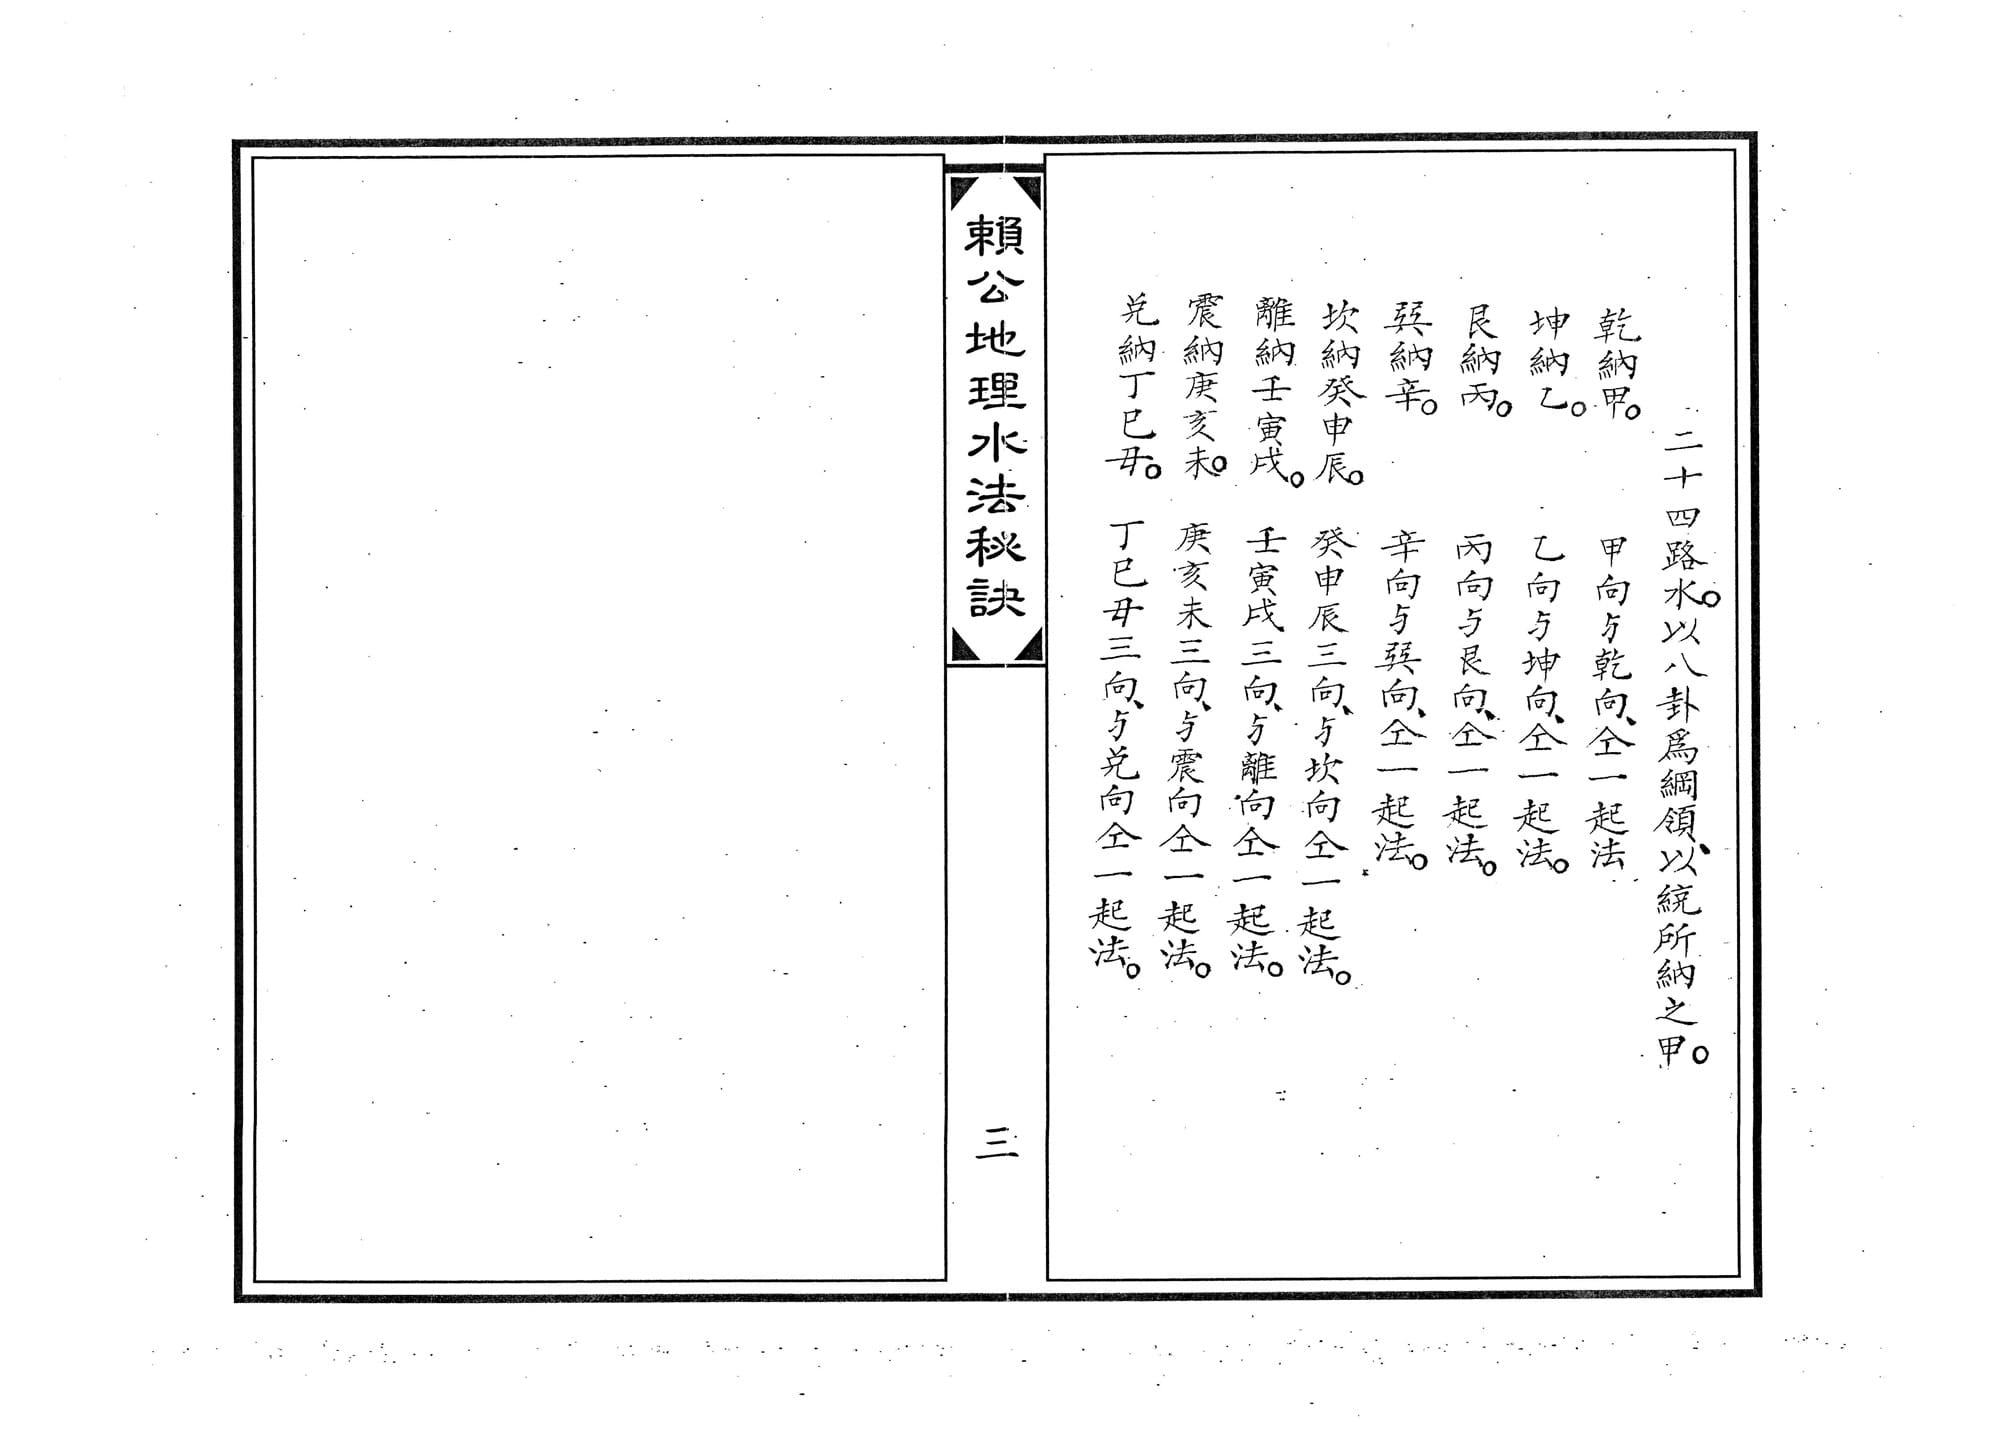 二十四路水。以八卦爲綱領、以統所納之甲。
乾納甲。　甲向与乾向、仝一起法
坤納乙。　乙向与坤向、仝一起法。
艮納丙。　丙向与艮向、仝一起法。
巽納辛。　辛向与巽向、仝一起法。
坎納癸申辰。　癸申辰三向、与坎向仝一起法。
離納壬寅戌。　壬寅戌三向、与離向仝一起法。
震納庚亥未。　庚亥未三向、与震向仝一起法。
兑納丁巳丑。　丁巳丑三向、与兑向仝一起法。
賴公地理水法秘訣
三